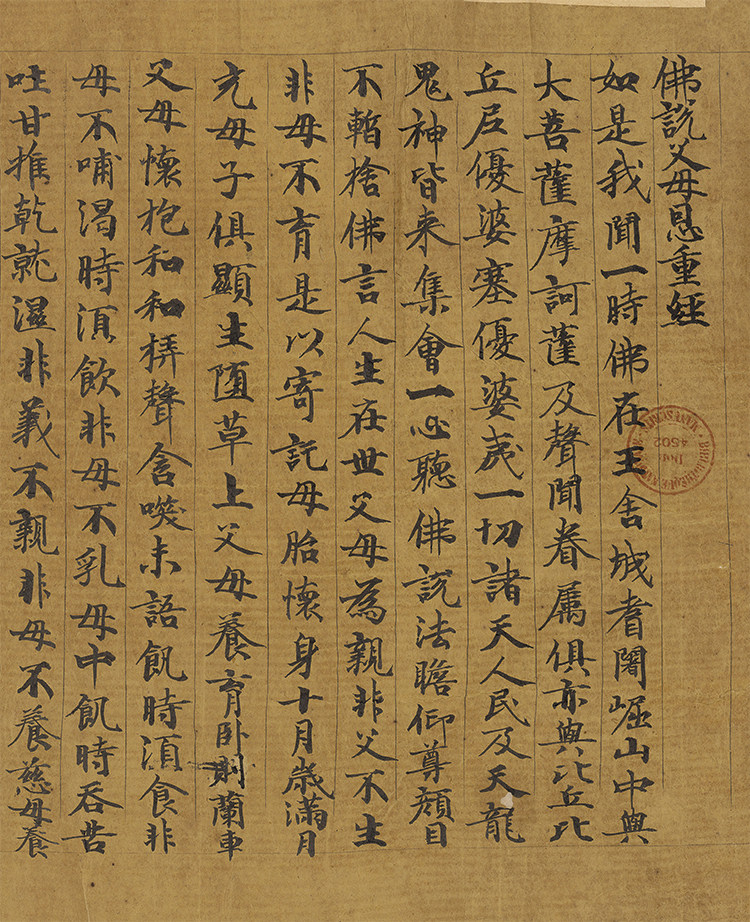 佛說父母恩重經
如是我聞一時佛在王舍城耆闍崛山中與
大菩薩摩訶薩及聲聞眷属俱亦與比丘比
丘尼優婆塞優婆夷一切諸天人民及天龍
鬼神皆来集會一心聽佛說法瞻仰尊顏目
不暫捨佛言人生在世父母為親非父不生
非母不育是以寄託母胎懷身十月歲滿月
充母子俱顯生墮草上父母養育卧則蘭車
父母懷抱和和弄聲含唉未語飢時湏食非
母不哺渴時湏飲非母不乳母中飢時吞苦
吐甘推乾就濕非義不親非母不養慈母養
BIBLIOTHÈQUE
MANUSCRITS
4502